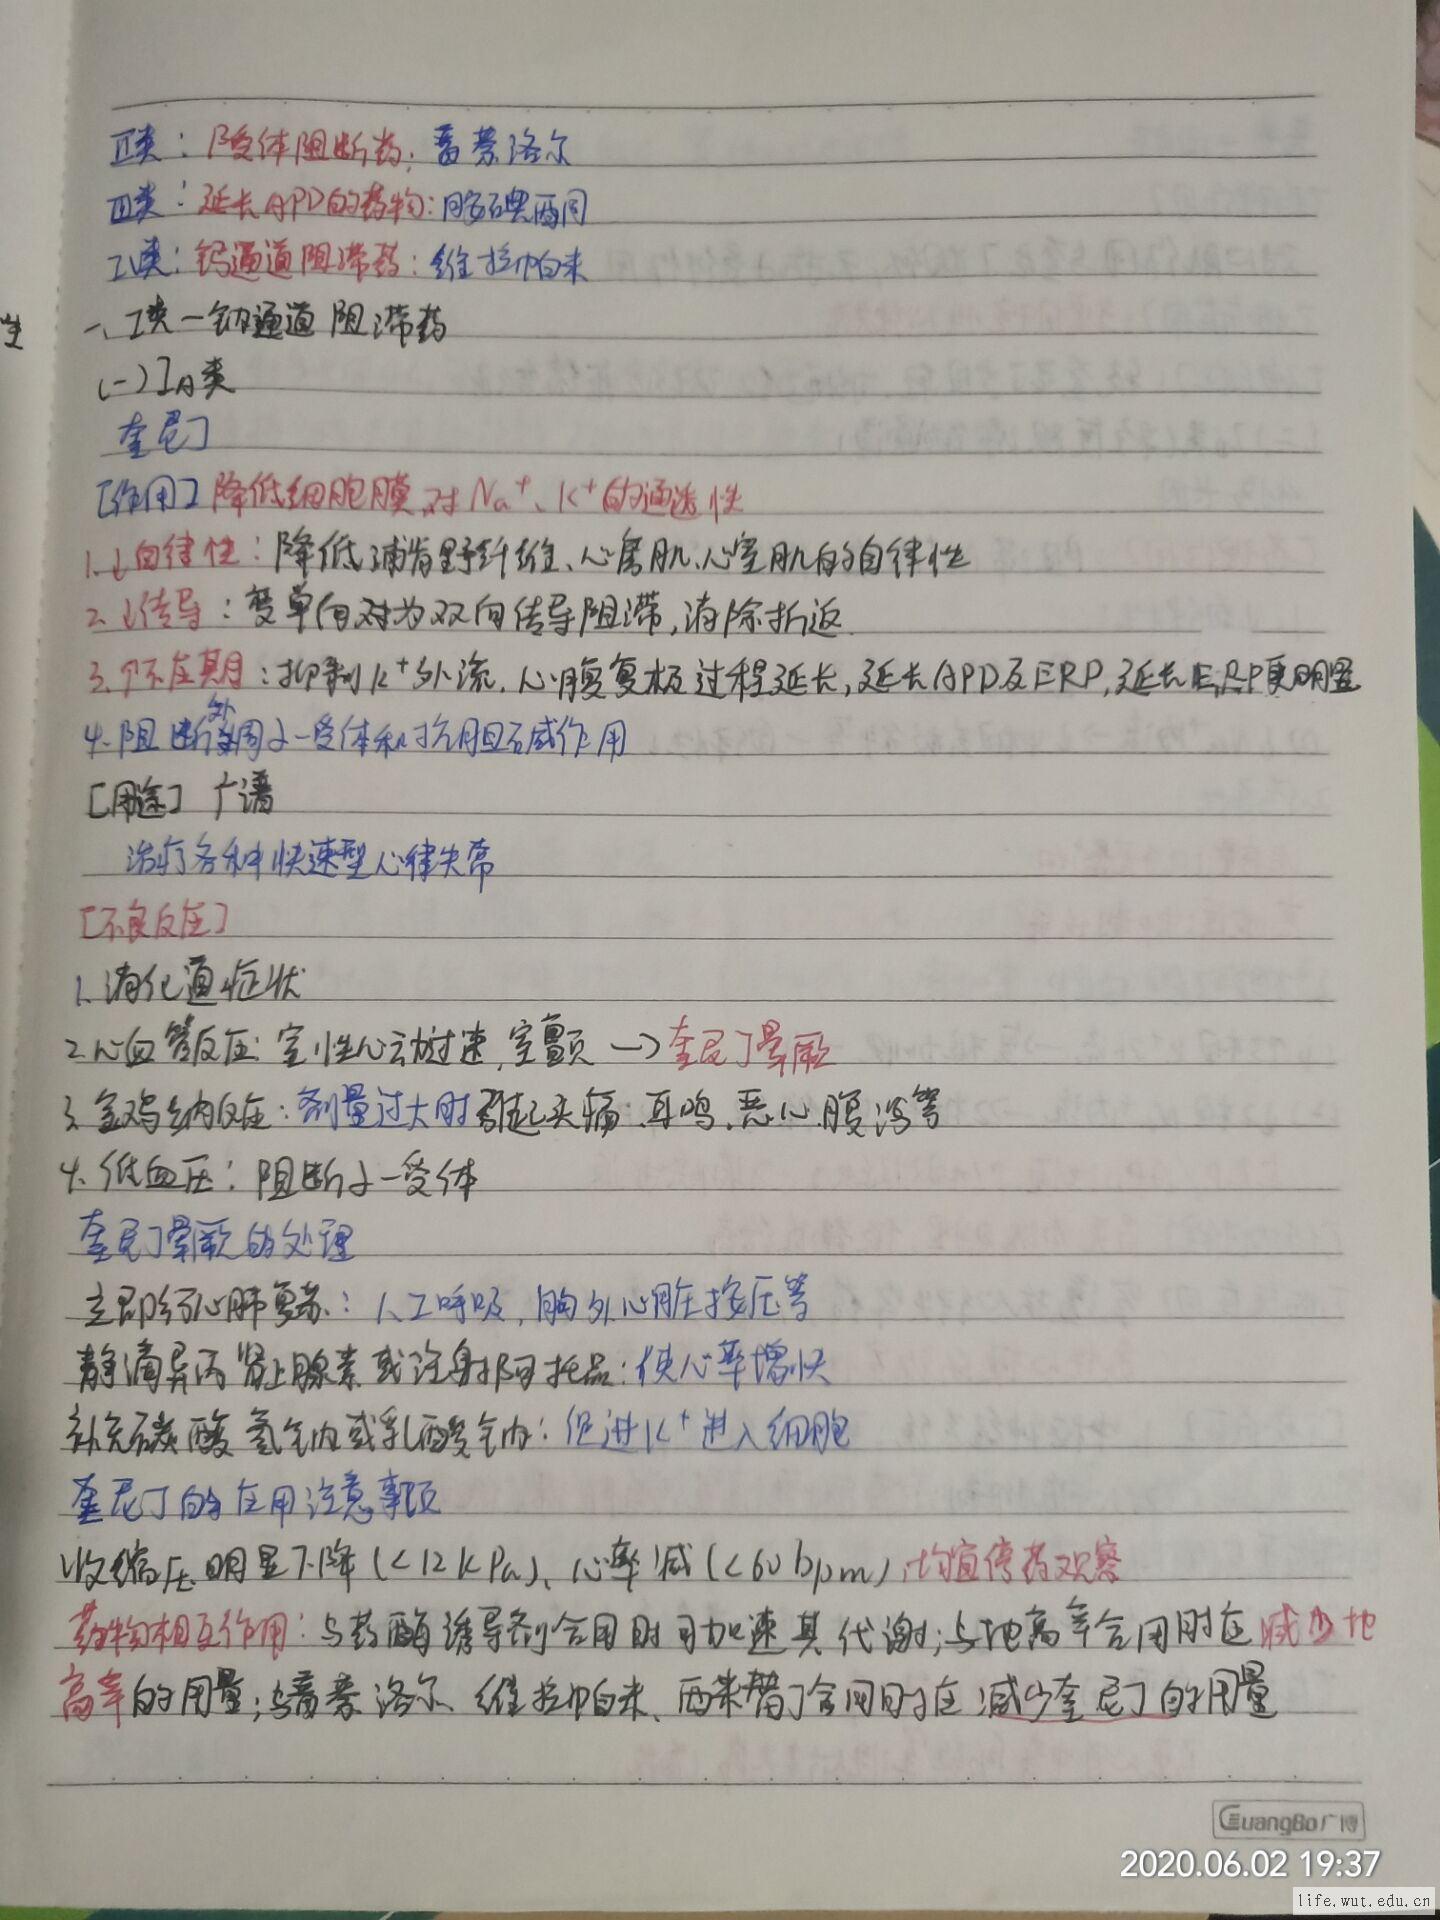 Ⅱ类：β受体阻断药：普萘洛尔
Ⅲ类：延长APD的药物：胺碘酮
Ⅳ类：钙通道阻滞药：维拉帕米
一、Ⅰ类—钠通道阻滞药
(一)ⅠA类
奎尼丁
[作用]降低细胞膜对Na⁺、K⁺的通透性
1.↓自律性：降低浦肯野纤维、心房肌、心室肌的自律性
2.↓传导：变单向对为双向传导阻滞,消除折返
3.↑不应期：抑制K⁺外流,心腹复极过程延长,延长APD及ERP,延长ERP更明显
4.阻断外周α-受体和抗胆碱作用
[用途] 广谱
治疗各种快速型心律失常
[不良反应]
1.消化道症状
2.心血管反应:室性心动过速,室颤→奎尼丁晕厥
3.金鸡纳反应:剂量过大时引起头痛、耳鸣、恶心、腹泻等
4.低血压:阻断α-受体
奎尼丁晕厥的处理
立即行心肺复苏:人工呼吸,胸外心脏按压等
静滴异丙肾上腺素或注射阿托品:使心率增快
补充碳酸氢钠或乳酸钠:促进K⁺进入细胞
奎尼丁的应用注意事项
收缩压明显下降(<12kPa)、心率减(<60bpm),均宜停药观察
药物相互作用:与药酶诱导剂合用时可加速其代谢;与地高辛合用时应减少地
高辛的用量;与普萘洛尔、维拉帕米、西米替丁合用时应减少奎尼丁的用量
GuangBo广博
2020.06.02 19:37
life.wut.edu.cn